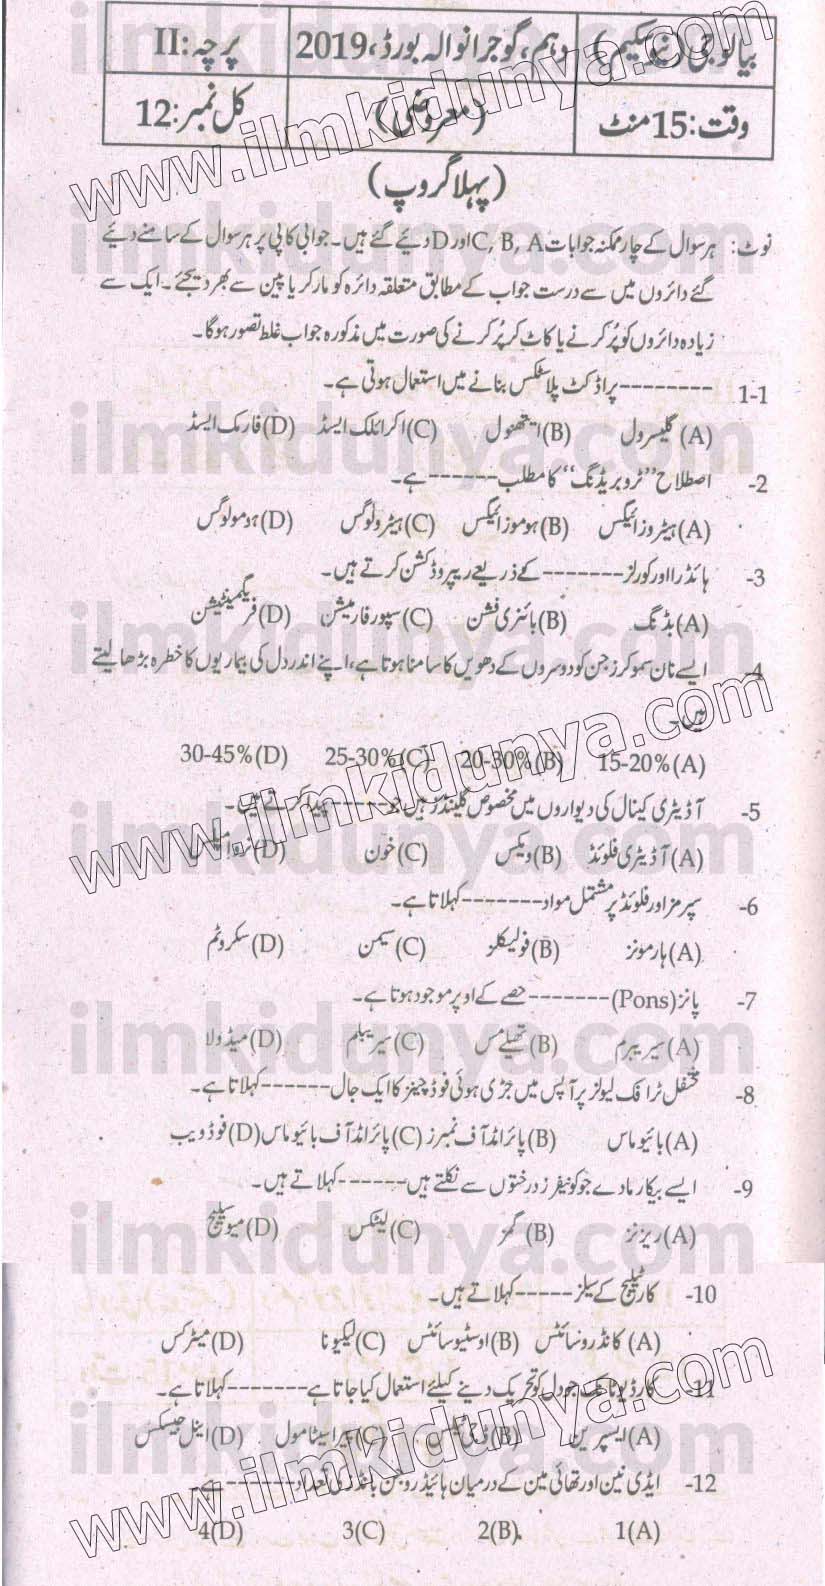 بیالوجی (نیو سکیم) دہم، گوجرانوالہ بورڈ، 2019 پرچہ: II
وقت: 15 منٹ (معروضی) کل نمبر: 12
(پہلا گروپ)
نوٹ: ہر سوال کے چار ممکنہ جوابات C, B, A اور D دیئے گئے ہیں۔ جوابی کاپی پر ہر سوال کے سامنے دیئے
گئے دائروں میں سے درست جواب کے مطابق متعلقہ دائرہ کو مارکر یا پین سے بھر دیجئے۔ ایک سے
زیادہ دائروں کو پُر کرنے یا کاٹ کر پُر کرنے کی صورت میں مذکورہ جواب غلط تصور ہوگا۔
1-1 --------- پراڈکٹ پلاسٹکس بنانے میں استعمال ہوتی ہے۔
(A) گلیسرول (B) ایتھنول (C) اکرائلک ایسڈ (D) فارمک ایسڈ
2- اصطلاح ”ٹرو بریڈنگ“ کا مطلب ------ ہے۔
(A) ہیٹروزائیگس (B) ہوموزائیگس (C) ہیٹرولوگس (D) ہومولوگس
3- ہائڈرا اور کورلز ------- کے ذریعے ریپروڈکشن کرتے ہیں۔
(A) بڈنگ (B) بائنری فشن (C) سپور فارمیشن (D) فریگمینٹیشن
4- ایسے نان سموکرز جن کو دوسروں کے دھویں کا سامنا ہوتا ہے، اپنے اندر دل کی بیماریوں کا خطرہ بڑھا لیتے
ہیں۔
(A) 15-20% (B) 20-30% (C) 25-30% (D) 30-45%
5- آڈیٹری کینال کی دیواروں میں مخصوص گلینڈز ہیں جو ----- پیدا کرتے ہیں۔
(A) آڈیٹری فلوئڈ (B) ویکس (C) خون (D) نرو امپلس
6- سپرمز اور فلوئڈ پر مشتمل مواد ------- کہلاتا ہے۔
(A) ہارمونز (B) فولیکلز (C) سیمن (D) سکروٹم
7- پانز (Pons) ------- حصے کے اوپر موجود ہوتا ہے۔
(A) سیریبرم (B) تھیلمس (C) سیریبلم (D) میڈولا
8- مختلف ٹرافک لیولز پر آپس میں جڑی ہوئی فوڈ چینز کا ایک جال ------ کہلاتا ہے۔
(A) بائیوماس (B) پائرامڈ آف نمبرز (C) پائرامڈ آف بائیوماس (D) فوڈ ویب
9- ایسے بیکار مادے جو کونیفرز درختوں سے نکلتے ہیں ------ کہلاتے ہیں۔
(A) ریزنز (B) گمز (C) لیٹکس (D) میوسلیج
10- کارٹیلیج کے سیلز ----- کہلاتے ہیں۔
(A) کانڈروسائٹس (B) اوسٹیوسائٹس (C) لیکیونا (D) میٹرکس
11- کارڈیوٹانک جو دل کو تحریک دینے کیلئے استعمال کیا جاتا ہے ------- کہلاتا ہے۔
(A) ایسپرین (B) ڈیجی ٹیلس (C) پیراسیٹامول (D) اینل جیسکس
12- ایڈی نین اور تھائی مین کے درمیان ہائیڈروجن بانڈز کی تعداد ------- ہے۔
1(A) 2(B) 3(C) 4(D)
www.ilmkidunya.com